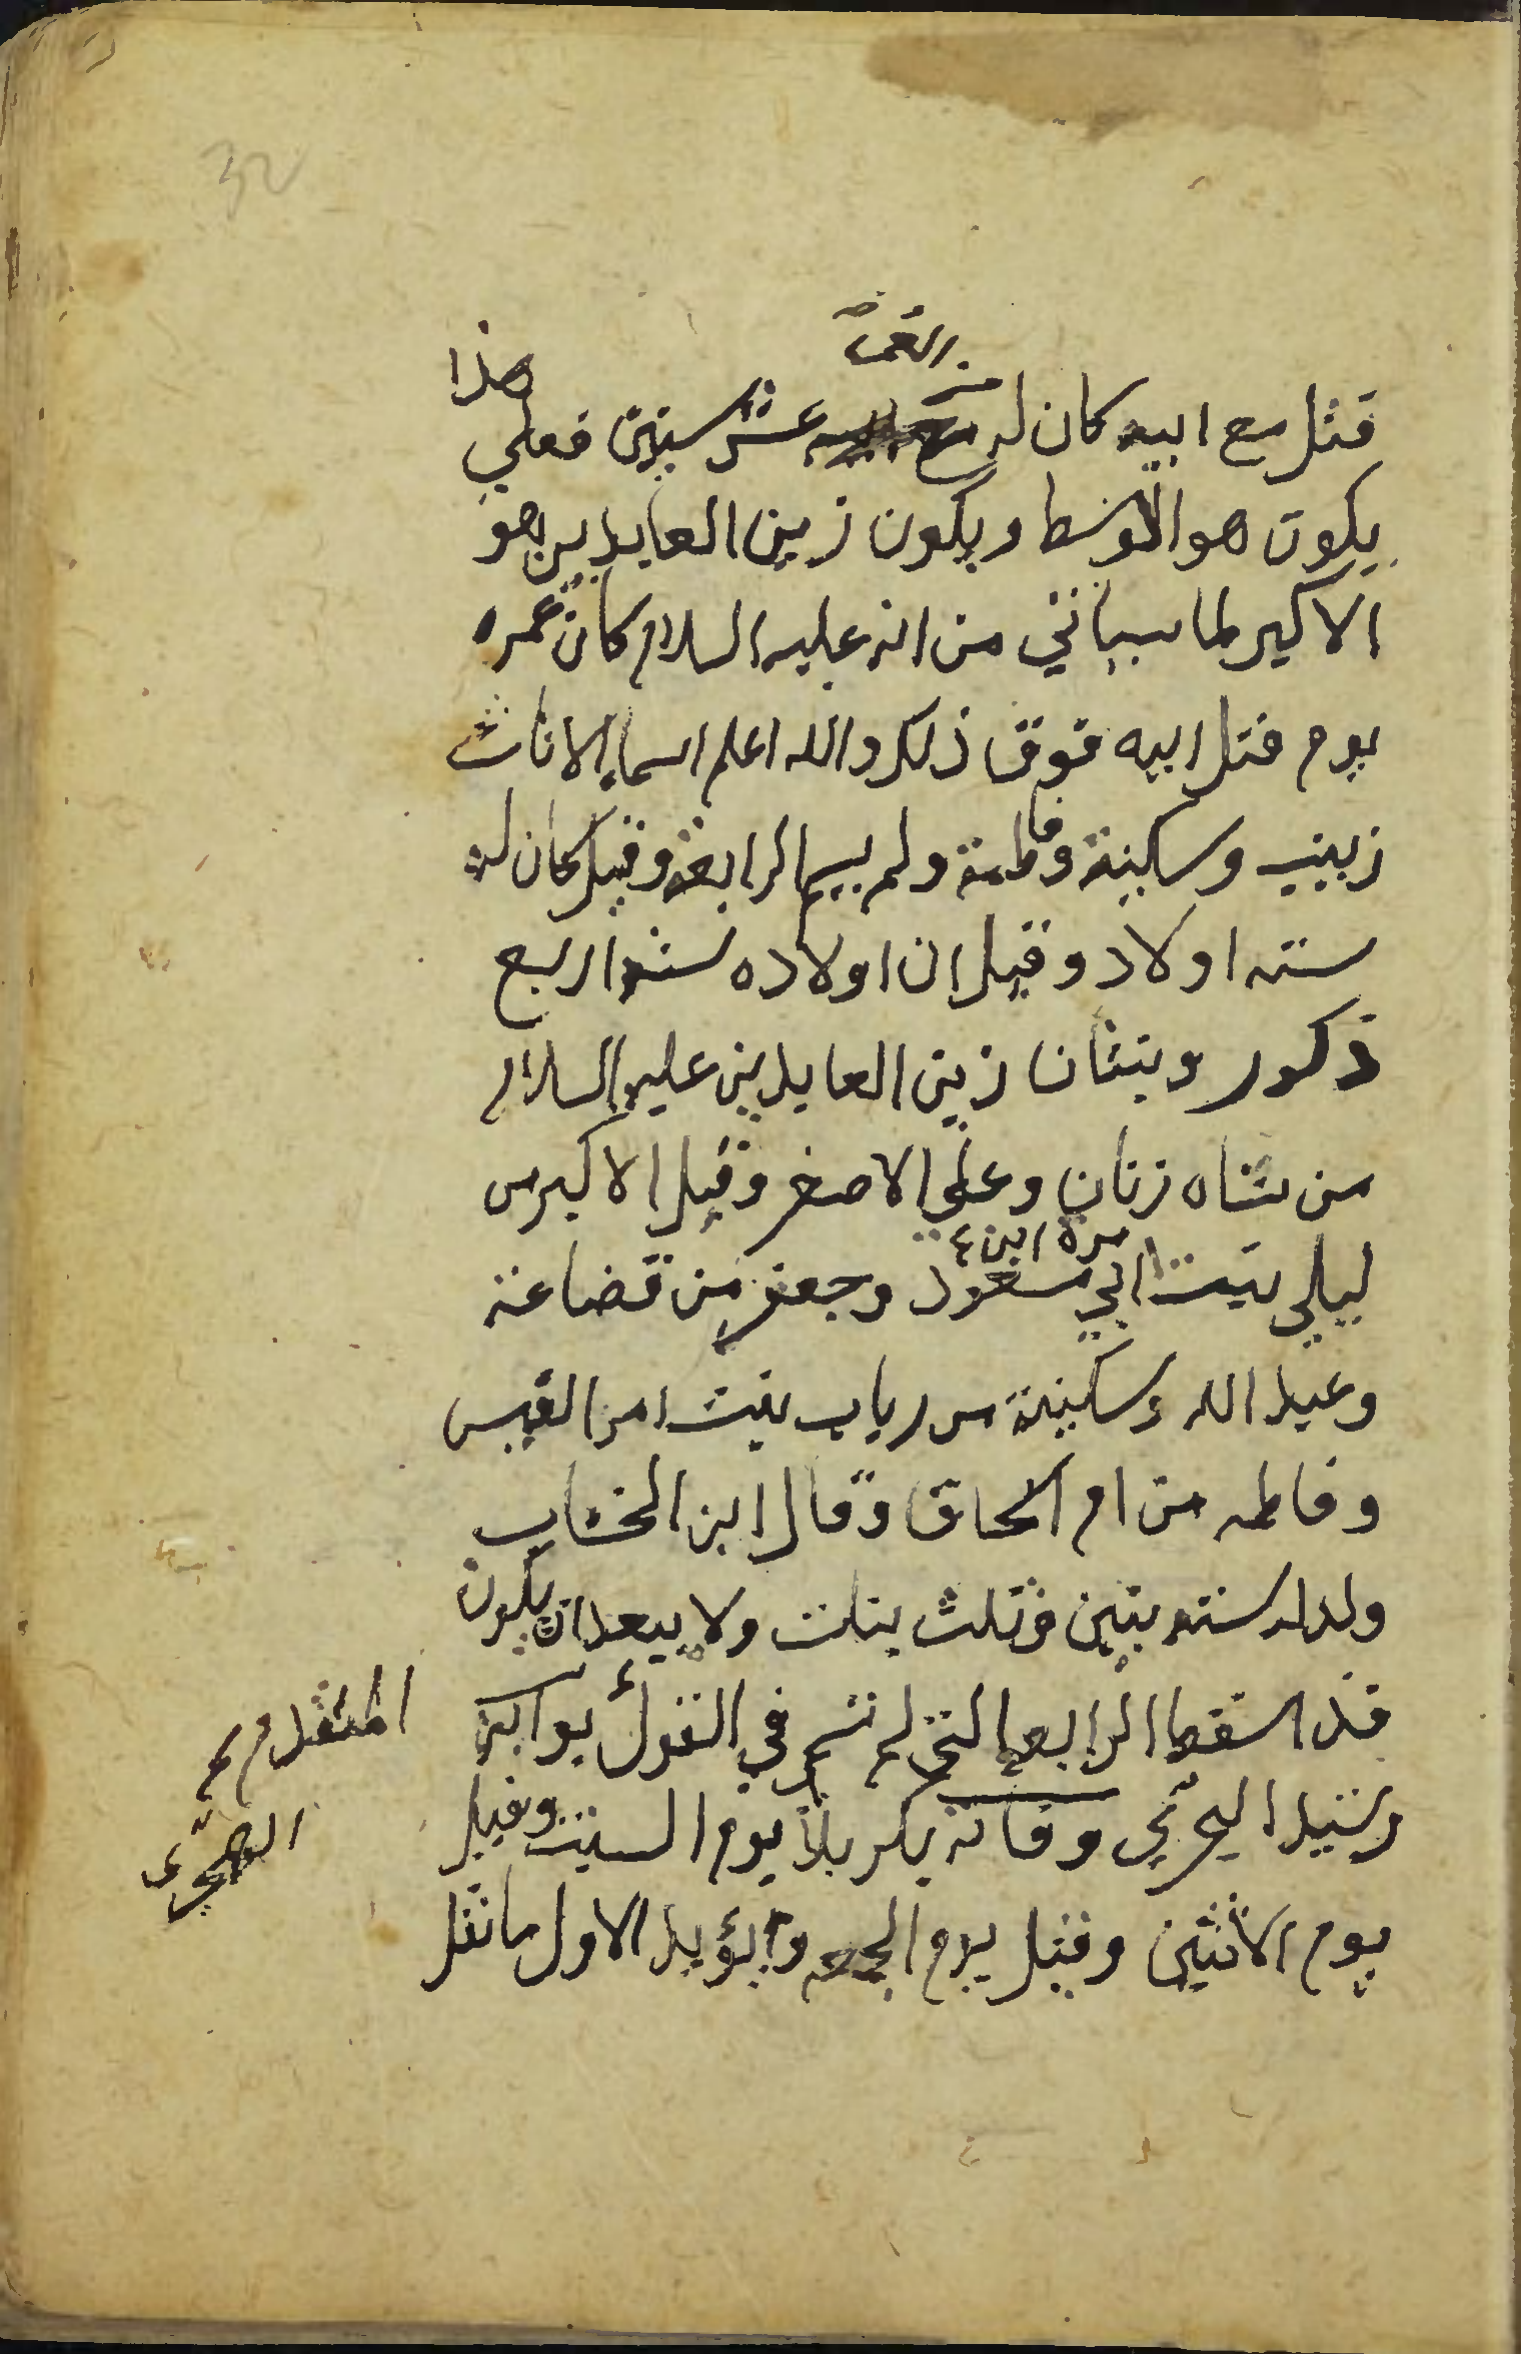 من العمر
قتل مع ابيه كان له عشر سنين فعلي هذا
يكون هو الاوسط ويكون زين العابدين هو
الاكبر لما سياتي من انه عليه السلام كان عمره
يوم قتل ابيه فوق ذلك والله اعلم اسماء الاناث
زينب وسكينة وفاطمة ولم يسم الرابعة وقيل كان له
سته اولاد وقيل ان اولاده سته اربع
ذكور وبنتان زين العابدين عليه السلام
من شاه زنان وعلي الاصغر وقيل الاكبر من
مرة ابن
ليلي بنت ابي مسعود وجعفر من قضاعة
وعبد الله وسكينة من رباب بنت امرء القيس
وفاطمه من ام اسحاق وقال ابن الخشاب
ولد له سته بنين وثلث بنات ولا يبعد ان يكون
قد اسقط الرابعه التي لم تسم في القول بواكبة
المتقدم
رشيد الهجري وفاته بكربلاء يوم السبت وقيل
الهجري
يوم الاثنين وقيل يوم الجمعه ويؤيد الاول ما نقل